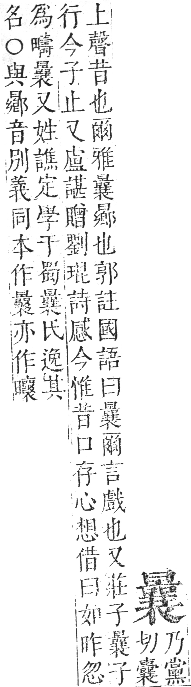 曩
乃黨
切囊
上聲昔也爾雅曩曏也郭註國語曰曩爾言戲也又莊子曩子
行今子止又盧諶贈劉琨詩感今惟昔口存心想借曰如昨忽
爲疇曩又姓譙定學于蜀曩氏逸其
名○與曏音別義同本作曩亦作